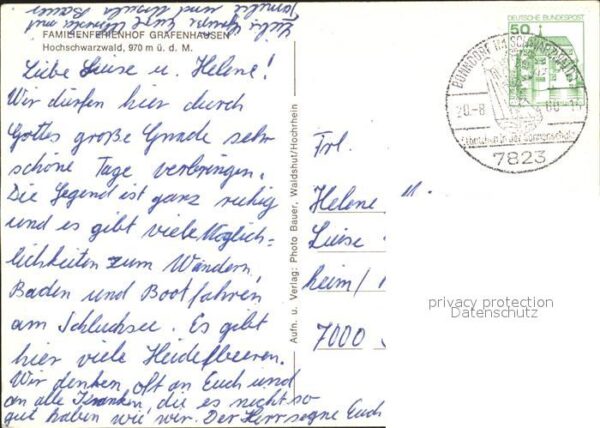 FAMILIENFERIENHOF GRAFENHAUSEN
Hochschwarzwald, 970 m ü. d. M.
Liebe Luise u. Helene!
Wir dürfen hier durch
Gottes große Gnade sehr
schöne Tage verbringen.
Die Gegend ist ganz ruhig
und es gibt viele Möglich-
lichkeiten zum Wandern,
Baden und Bootfahren
am Schluchsee. Es gibt
hier viele Heidelbeeren.
Wir denken oft an Euch und
an alle Kranken, die es nicht so
gut haben wie wir. Der Herr segne Euch
Familie und
Aufn. u. Verlag: Photo Bauer, Waldshut/Hochrhein
DEUTSCHE BUNDESPOST
50
BONNDORF IM SCHWARZWALD
20.-8.
7823
Frl.
Helene u.
Luise
heim/
7000
privacy protection
Datenschutz